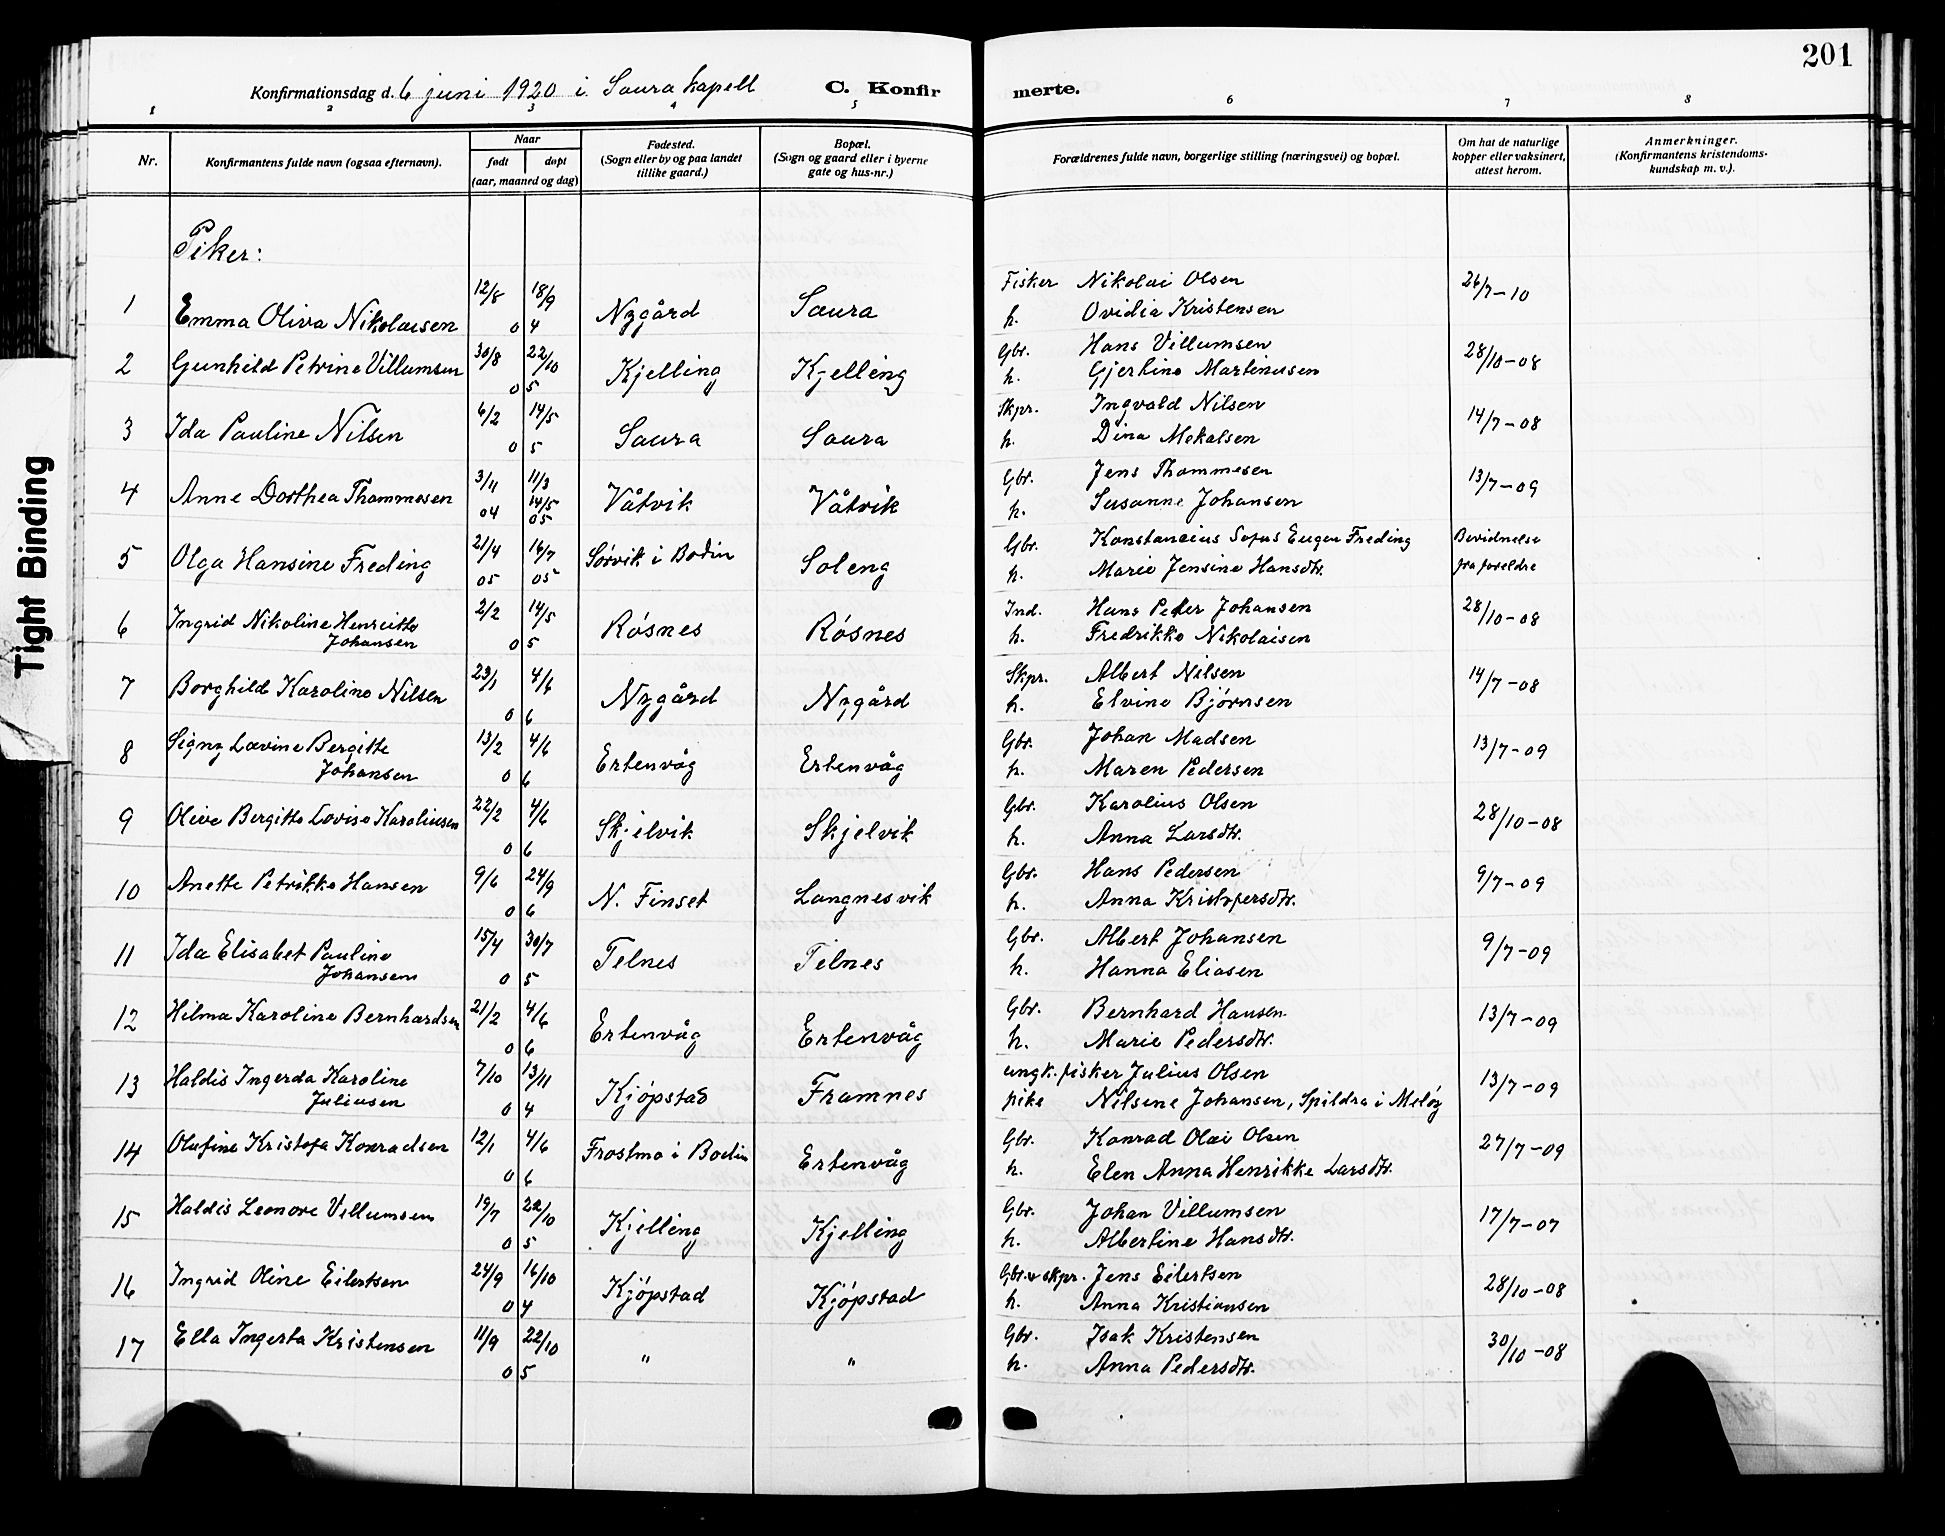 201
Konfirmationsdag d. 6 juni 1920 i Saura kapell C. Konfirmerte.
1 2 3 4 5 6 7 8
Nr. Konfirmantens fulde navn (ogsaa efternavn). Naar født døpt (aar, maaned og dag) Fødested. (Sogn eller by og paa landet tillike gaard.) Bopæl. (Sogn og gaard eller i byerne gate og hus-nr.) Forældrenes fulde navn, borgerlige stilling (næringsvei) og bopæl. Om hat de naturlige kopper eller vaksinert, attest herom. Anmerkninger. (Konfirmantens kristendoms-kundskap m. v.).
Tight Binding
Piker:
1 Emma Oliva Nikolaisen 12/8 18/9 04 Nygård Saura Fisker Nikolai Olsen 26/7-10
h. Ovidia Kristensen
2 Gunhild Petrine Villumsen 30/8 22/10 05 Kjelling Kjelling Gbr. Hans Villumsen 28/10-08
h. Gjertine Martinusen
3 Ida Pauline Nilsen 6/2 14/5 05 Saura Saura Skpr. Ingvald Nilsen 14/7-08
h. Dina Mekalsen
4 Anne Dorthea Thommesen 3/11 04 11/3 14/5 05 Våtvik Våtvik Gbr. Jens Thommesen 13/7-09
h. Susanne Johansen
5 Olga Hansine Freding 21/4 05 16/7 05 Sørvik i Bodin Soleng Gbr. Konstancius Sofus Eugen Freding Bevidnelse
h. Marie Jensine Hansdtr. fra foreldre
6 Ingrid Nikoline Henriette 2/2 14/5 05 Røsnes Røsnes Ind. Hans Peder Johansen 28/10-08
Johansen h. Fredrikke Nikolaisen
7 Borghild Karoline Nilsen 23/1 4/6 06 Nygård Nygård Skpr. Albert Nilsen 14/7-08
h. Elvine Bjørnsen
8 Signy Lovine Bergitte 13/2 4/6 06 Ertenvåg Ertenvåg Gbr. Johan Madsen 13/7-09
Johansen h. Maren Pedersen
9 Olive Bergitte Lovise Karoliusen 22/2 4/6 06 Skjelvik Skjelvik Gbr. Karolius Olsen 28/10-08
h. Anna Larsdtr.
10 Anette Petrikke Hansen 9/6 24/9 06 N. Finset Langnesvik Gbr. Hans Pedersen 9/7-09
h. Anna Kristofersdtr.
11 Ida Elisabet Pauline 15/4 30/7 05 Telnes Telnes Gbr. Albert Johansen 9/7-09
Johansen h. Hanna Eliasen
12 Hilma Karoline Bernhardsen 21/2 4/6 06 Ertenvåg Ertenvåg Gbr. Bernhard Hansen 13/7-09
h. Marie Pedersdtr.
13 Haldis Ingerda Karoline 7/10 13/11 04 Kjøpstad Framnes ungk. fisker Julius Olsen 13/7-09
Juliusen pike Nilsine Johansen, Spildra i Meløy
14 Olufine Kristofa Konradsen 12/1 4/6 06 Frostmo i Bodin Ertenvåg Gbr. Konrad Olai Olsen 27/7-09
h. Elen Anna Henrikke Larsdtr.
15 Haldis Leonore Villumsen 19/7 22/10 05 Kjelling Kjelling Gbr. Johan Villumsen 17/7-07
h. Albertine Hansdtr.
16 Ingrid Oline Eilertsen 24/9 16/10 04 Kjøpstad Kjøpstad Gbr. & skpr. Jens Eilertsen 28/10-08
h. Anna Kristiansen
17 Ella Ingerta Kristensen 11/9 22/10 05 " " Gbr. Isak Kristensen 30/10-08
h. Anna Pedersdtr.